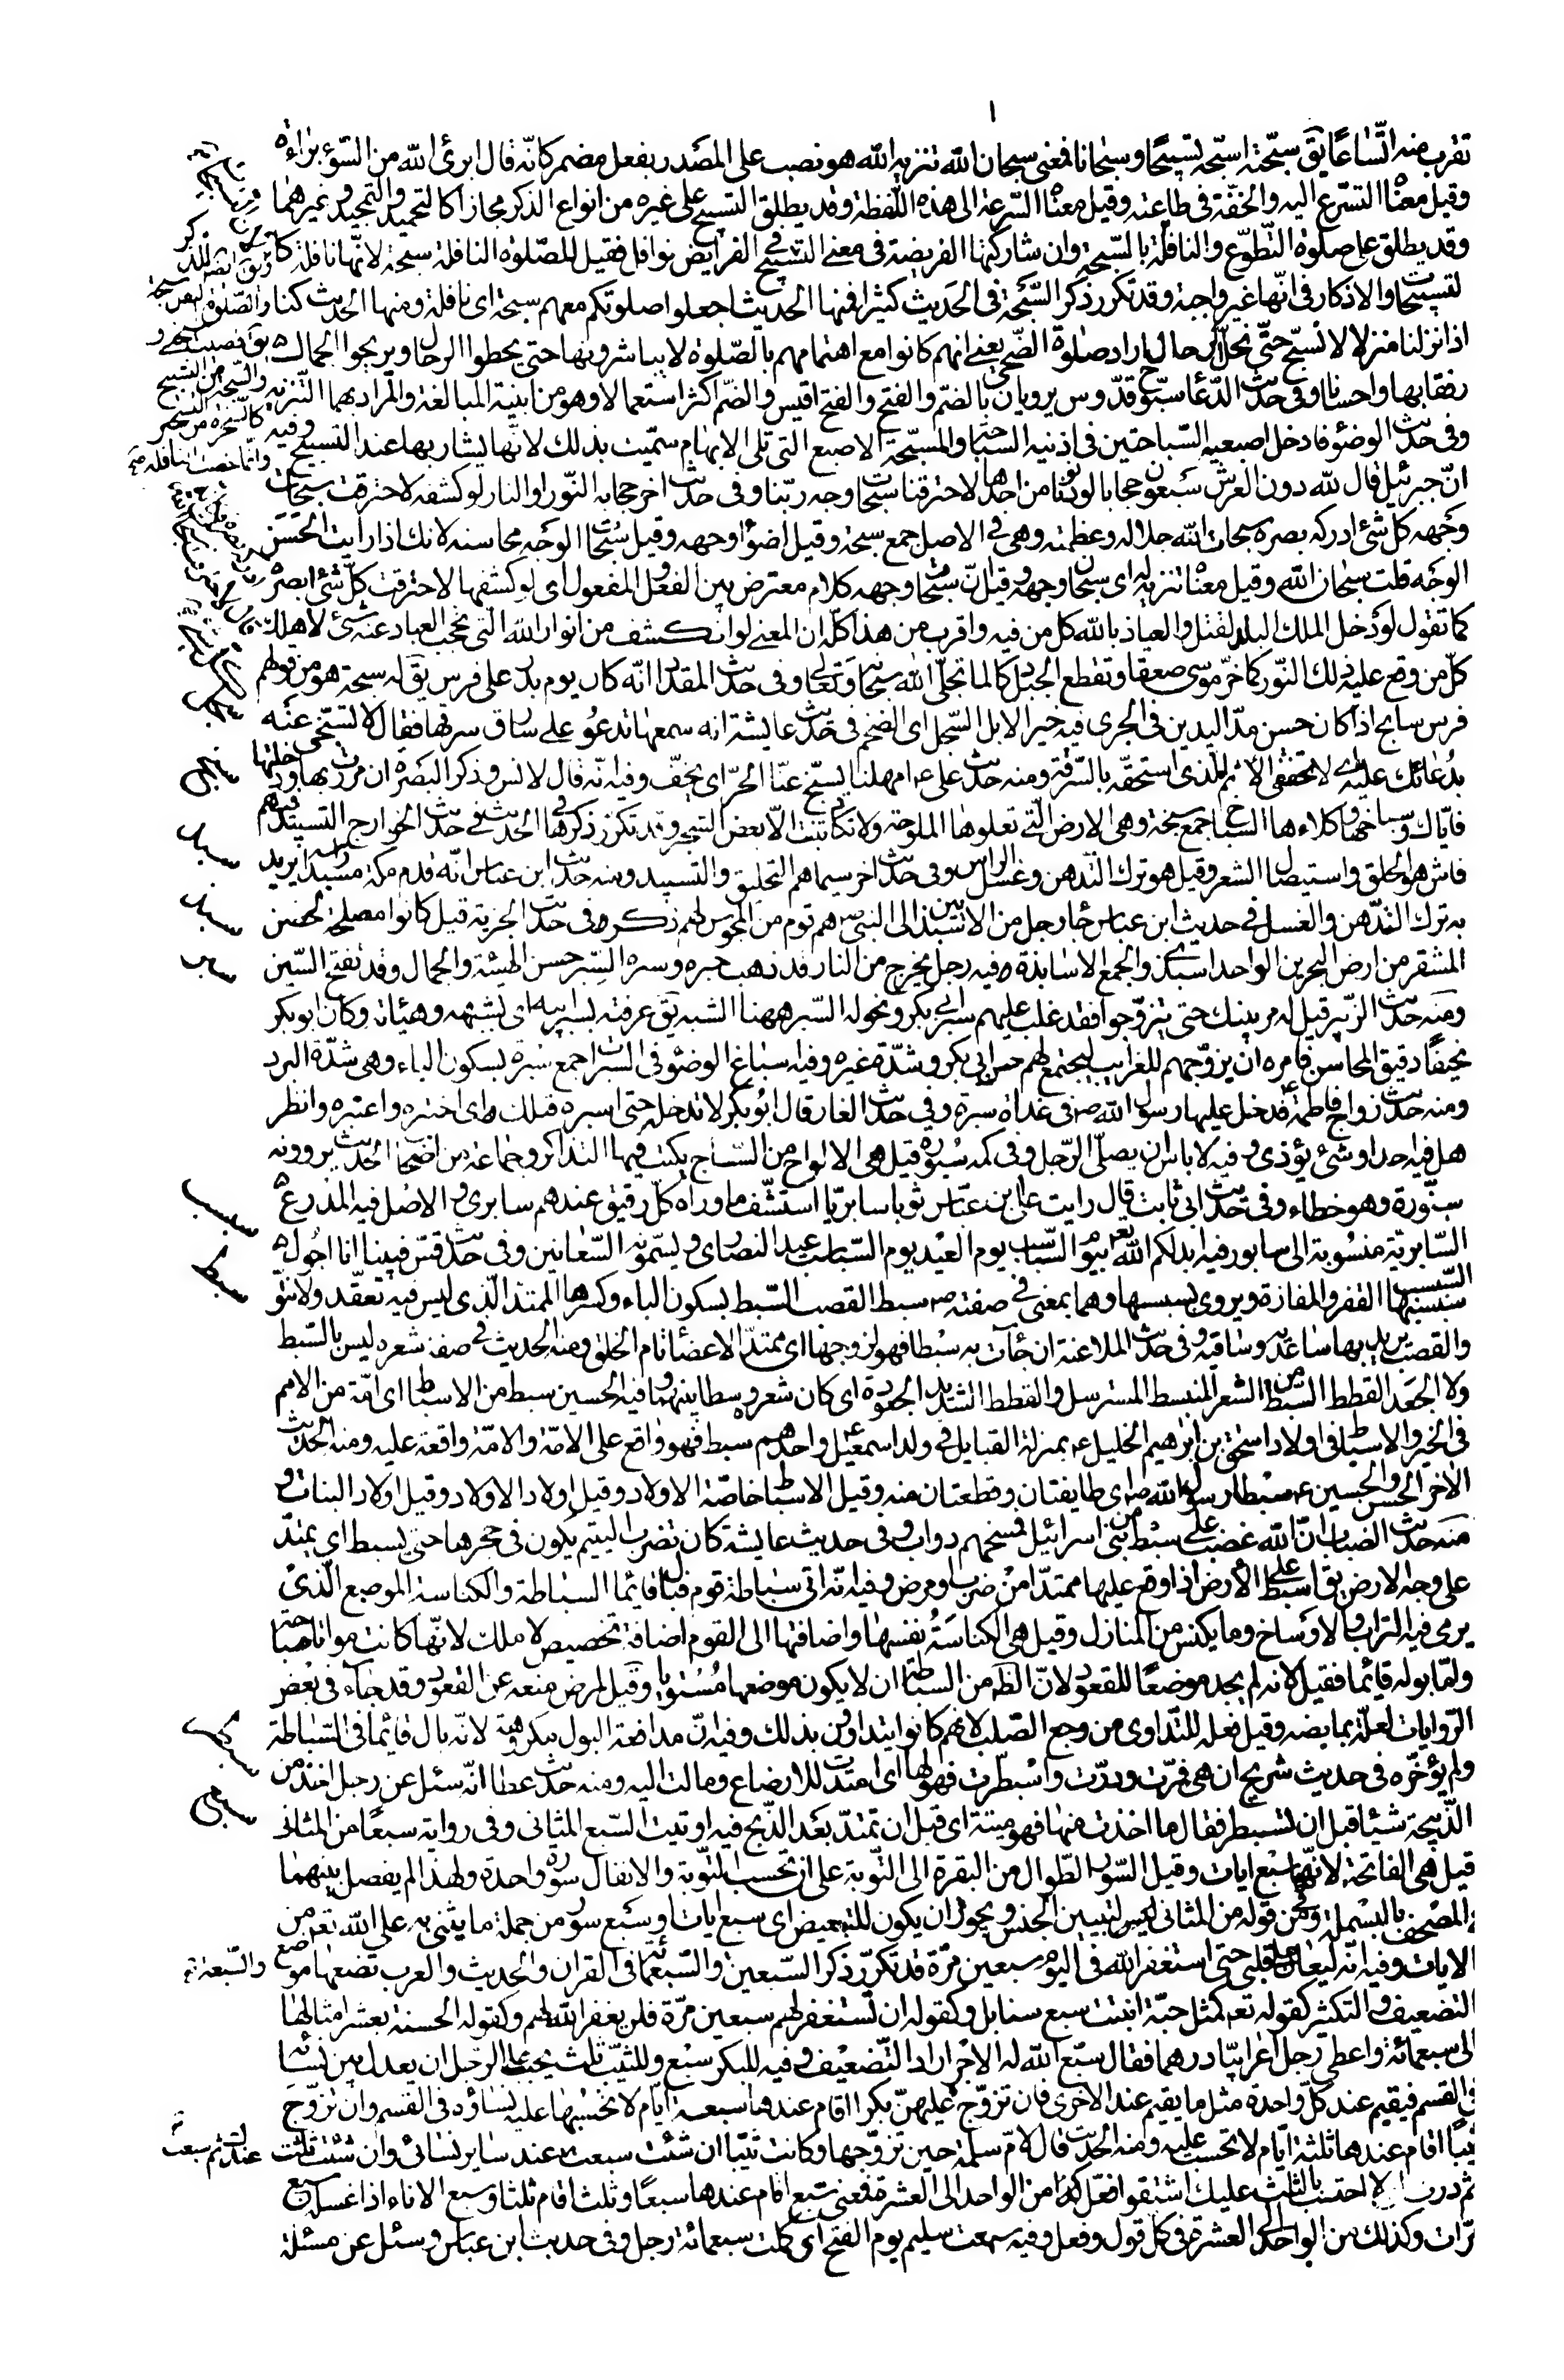 ١
تقرب منه اتّساعًا يقَ سبّحته اسبّحه تسبيحًا وسبحانا فمعنى سبحان الله تنزيه الله هو نصب على المصَدر بفعل مضمر كانّه قال ابرئ الله من السّوء براءة
وقيل معناه التسرّع اليه والخفّة في طاعته وقيل معناه السّرعة الى هذه اللّفظة وقد يطلق التسبيح على غيره من انواع الذكر مجازا كالتحميد والتمجيد وغيرهما
وقد يطلق على صلوة التّطوّع والنافلة بالسّبحة وان شاركتها الفريضة في معنى التسبيح الفرايض نوافل فقيل للصّلوة النافلة سبحة لانّها نافلة كا
لتسبيحات والاذكار في انّها غير واجبة وقد تكرر ذكر السُّبَحة في الحَديث كثيرا فمنها الحديث اجعلوا صلوتكم معهم سبحة اى نافلة ومنها الحديث كنا
اذا نزلنا منزلا لا نسبّح حتّى نحلّ الرحال اراد صلوة الضّحى يعنى انهم كانوا مع اهتمامهم بالصّلوة لا يباشرونها حتى يحطوا الرحال ويريحوا الجمال
رفقا بها واحسانا وفى حديث الدّعا سبّوح قدّوس يرويان بالضم والفتح والفتح اقيس والضّم اكثر استعمالا وهو من ابنية المبالغة والمراد بهما التّنزيه
وفى حديث الوضوٴ فادخل اصبعيه السّباحتين فى اذنيه السباحة والمسبّحة الاصبع التى تلى الابهام سمّيت بذلك لانّها يشار بها عند التسبيح وفيه
انّ جبرئيل قال لله دون العرش سَبعون حجابا لو دنونا من احدها لاحترقنا سبحات وجه ربّنا وفى حديث اخر حجابه النّور او النار لو كشفه لاحترقت سبحات
وَجهه كل شئ ادركه بصره سبحات الله جلاله وعظمته وهى فى الاصل جمع سبحة وقيل اضوٴا وجهه وقيل سُبحات الوجَه محاسنه لانك اذا رايت الحَسَن
الوجَه قلت سبحان الله وقيل معناه تنزيه له اى سبحان وجهه وقيل انّ سبحات وجهه كلام معترض بين الفعل والمفعول اى لو كشفها لاحترقت كلّ شئ ابصره
كما تقول لوَدخل الملك البلد لقتل والعياذ بالله كل من فيه واقرب من هذا كلّه ان المعنى لو انكشف من انوار الله التى تحجب العباد عنه شئ لاهلك
كلّ من وقع عليه ذلك النّور كما خرّ موسى صعقا وتقطع الجبَل دكا لما تجلّى الله سبحانه وتَعالى وفى حديث المقداد انّه كان يوم بدر على فرس يقَ له سبحة هو من قولهم
فرس سابح اذا كان حسن مدّ اليدين فى الجرى فيه خير الابل السّبحل اى الضخم فى حديث عايشة انه سمعها تدعوُ على ساق سرقها فقال لا تسبّخى عنَه
بدُعائك عليه اى لا تخففى الاثم الذى استحقّه بالسّرقة ومنه حديث على ع امهلنا يسبّخ عنّا الحرّ اى يخفّ وفيه انّه قال لانس وذكر البصَرة ان مررت بها ودخلتها
فايّاك وسباخها وكلاءها السباخ جمع سبخة وهى الارض الّتى تعلوها الملوحة ولا تكاد تنبت الّا بعض الشجر وقد تكرّر ذكرها فى الحديث فى حديث الخوارج التسبيد فيهم
فاش هو الحلق واستيصال الشعر وقيل هو ترك التدهن وغسل الراس وفى حديث اخر سيماهم التحليق والتسبيد ومنه حديث ابن عباس انّه قدم مكة مسبدا راسه يريد
به ترك التدّهن والغسل فى حديث ابن عباس جاء رجل من الاسبذيين الى النبى ص هم قوم من المجوس لهم ذكر فى حديث الجزية قيل كانوا مصلحة لحصن
المشقر من ارض البحرين الواحد اسبذى والجمع الاسابذة فيه رجل يخرج من النار قد ذهب حبره وسبره السِّبر حسن الهيئة والجمال وقد تفتح السّين
ومنَه حديث الزّبير قيل له مر بنيك حتى يتزوّجوا فقد غلب عليهم سبر ابى بكر ونحوله السّبر ههنا الشبه يقَ عرفته بسبر ابيه اى بشبهه وهيئاته وكان ابو بكر
نحيفًا دقيق المحاسن فامره ان يزوّجهم للغرايب ليجتمع لهم حسن ابى بكر وشدّة غيره وفيه سباغ الوضوٴ فى السبرات جمع سَبرة بسكون الباء وهى شدّة البرد
ومنه حديث زواج فاطمة ع فدخل عليها رسول الله ص فى غداة سبرة وفى حديث الغار قال ابوُ بكر لا تدخله حتى اسبره قبلك اى اختبره واعتبره وانظر
هل فيه احد او شئ يؤذى وفيه لا باس ان يصلّى الرّجل وفى كمه سُبّوره قيل هى الالواح من السّاج يكتب فيها التذاكر وجماعة من اصحاب الحديث يروونه
ستّورة وهو خطاء وفى حديث ابى ثابت قال رايت على ابن عبّاس ثوبا سابريّا استشّف ما وراه كل رقيق عندهم سابرى والاصل فيه الدروع
السّابريّة منسُوبة الى سابور وفيه ابدلكم الله تع بيوم السباسب يوم العيْد يوم السّباسب عيد النصارى ويسمّونه السّعانين وفى حديث قسّ فبينا انا اجُول
سَبسَبها السّبسب القفر والمفازة ويروى بسبسها وهما بمعنى فى صفته ص سبط القصب السّبط بسكون الباء وكسرها الممتد الّذى ليس فيه تعقّد ولا نتوّ
والقصب يريد بها ساعَديه وساقيه وفى حديث الملاعنة ان جَاءت به سبْطا فهو لزوجها اى ممتدّ الاعضاء تام الخلق ومنه الحديث فى صفة شعره ليس بالسّبط
ولا الجَعَد القطط السّبط من الشعر المنبسط المسترسل والقطط الشديد الجعودة اى كان شعره وسطا بينهما وفيه الحسين سبط من الاسباط اى امّة من الامم
فى الخير والاسباط فى اولاد اسحق بن ابرهيم الخليل ع بمنزلة القبايل فى ولد اسمعيل واحدهم سبط فهو واقع على الامّة والامّة واقعة عليه ومنه الحديث
الاخر الحسن والحسين ع سبطا رسول الله ص اى طايفتان وقطعتان منه وقيل الاسباط خاصّة الاولاد وقيل اولاد الاولاد وقيل اولاد البنات و
منَه حديث الضباب انّ الله غضب على سبْط من بنى اسرائيل فمسخهم دواب وفى حديث عايشة كان تضرب اليتيم يكون فى حجرها حتى يسبط اى يمتدّ
على وجه الارض يق اسبط على الارض اذا وقع عليها ممتدّا من ضرب او مرض وفيه انّه اتى سُباطة قوم فبال قائما السباطة والكناسة الموضع الّذى
يرمى فيه التراب والاوسَاخ وما يكنس من المنازل وقيل هى الكناسَةُ نفسها واضافتها الى القوم اضافة تخصيص لا ملك لانّها كانت مواتا مباحة
وامّا بوله قائما فقيل لانه لم يجد موضعًا للقعود لانّ الظ من السباطة ان لا يكون موضعها مُسْتويا وقيل لمرض منعه عن القعود وقد جَاء فى بعْض
الرّوايات لعلّة بمابضه وقيل فعله للتداوى من وجع الصّلب لانهم كانوا يتداوون بذلك وفيه انّ مدافعة البول مكروهة لانّه بال قائما فى السّباطة
ولم يؤخّره فى حديث شريح ان هى قرّت ودرّت واسْبطرت فهو لها اى امتدت للارضاع ومالت اليه ومنه حديث عطا انّه سئل عن رجل اخذ من
الذّبيحة شيئا قبل ان تسبطر فقال ما اخذت منها فهو ميتة اى قبل ان تمتدّ بعَد الذّبح فيه اوتيت السّبع المثانى وفى رواية سبعًا من المثانى
قيل هى الفاتحة لانّها سبْع ايات وقيل السّور الطّوال من البقرة الى التّوبة على ان تحسب التّوبة والانفال سورة واحدة ولهذا لم يفصل بينهما
فى المصْحف بالبسْملة ومن فى قوله من المثانى لتبيين الجنس ويجوز ان يكون للتبعيض اى سبع ايات او سبَع سور من جملة ما يثنى به على الله تع من
الايات وفيه انّه ليغان على قلبى حتى استغفر الله فى اليوم سبعين مرّة قد تكرّر ذكر السّبعين والسّبعمائة فى القران والحديث والعرب تضعها موضع
التضعيف والتكثير كقوله تع كمثل حبّة انبتت سبع سنابل وكقوله ان تستغفر لهم سبعين مرّة فلن يغفر الله لهم وكقوله الحسنة بعشر امثالها
الى سبعمائة واعطى رجل اعرابيّا درهما فقال سبّع الله له الاجْر اراد التّضعيْف وفيه للبكر سبْع وللثيّب ثلاث يجب على الرجُل ان يعدل بين نسائه
فى القسم فيقيم عند كلّ واحدة مثل ما يقيم عند الاخرى فان تزوّج عليهنّ بكرا اقام عندها سبعة ايّام لا تحْسُبها عليه نساؤه فى القسم وان تزوّجَ
ثيّبا اقام عندها ثلثة ايّام لا تحسب عليه ومنه الحديث قال لامّ سلمة حين تزوّجها وكانت ثيّبا ان شئت سبعت عندك ثم سبعت عند ساير نسائى وان شئت ثلّثت
ثم درت لا احتسب بالثلث عليك اشتقوا فعّل من الواحد الى العشرة فمعنى سبّع اقام عندها سبعًا وثلّث اقام ثلثا وسبع الاناء اذا غسله سبع
مرّات وكذلك من الواحد الى العشرة فى كل قول وفعل وفيه سبعت سليم يوم الفتح اى كملت سبعمائة رجل وفى حديث ابن عباس وسئل عن مسئلة
سبحل
سبخ
سبد
سبذ
سبر
سبسب
سبط
سبطر
سبع